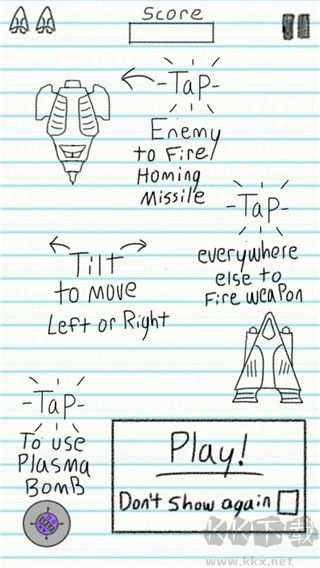 Score
-TaP-
Enemy
to Fire
Homing
Missile
-TaP-
everywhere
else to
Fire weapon
Tilt
to move
Left or Right
-TaP-
To use
Plasma
BomB
Play!
Don't show again
KK下载
www.kkx.net